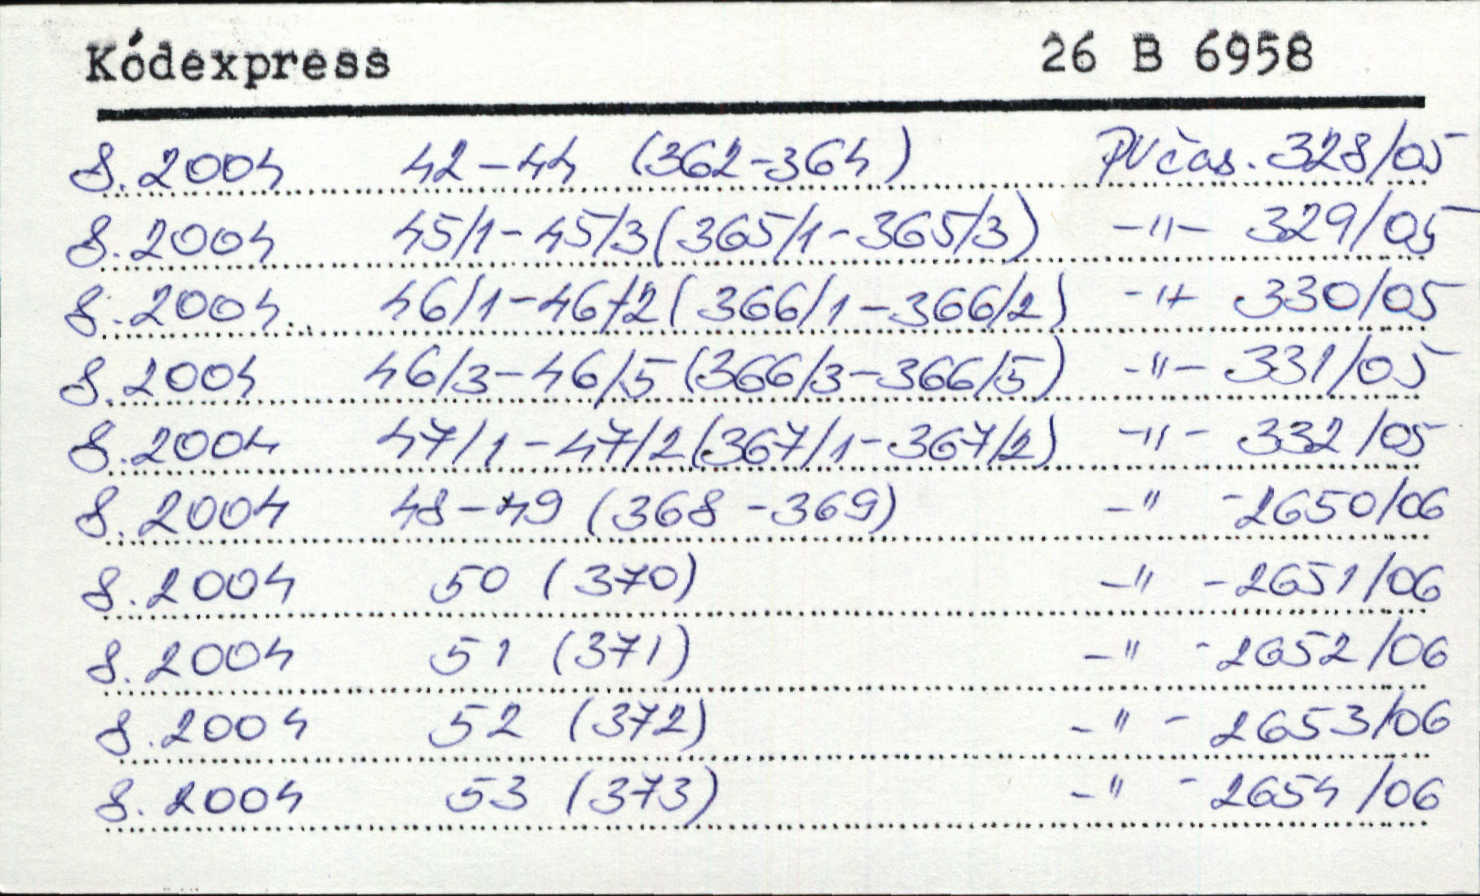 Kódexpress 26 B 6958
8.2004 42-44 (362-364) PV čas. 328/05
8.2004 45/1-45/3 (365/1-365/3) -"- 329/05
8.2004 46/1-46/2 (366/1-366/2) -"- 330/05
8.2004 46/3-46/5 (366/3-366/5) -"- 331/05
8.2004 47/1-47/2 (367/1-367/2) -"- 332/05
8.2004 48-49 (368-369) -"- 2650/06
8.2004 50 (370) -"- 2651/06
8.2004 51 (371) -"- 2652/06
8.2004 52 (372) -"- 2653/06
8.2004 53 (373) -"- 2654/06